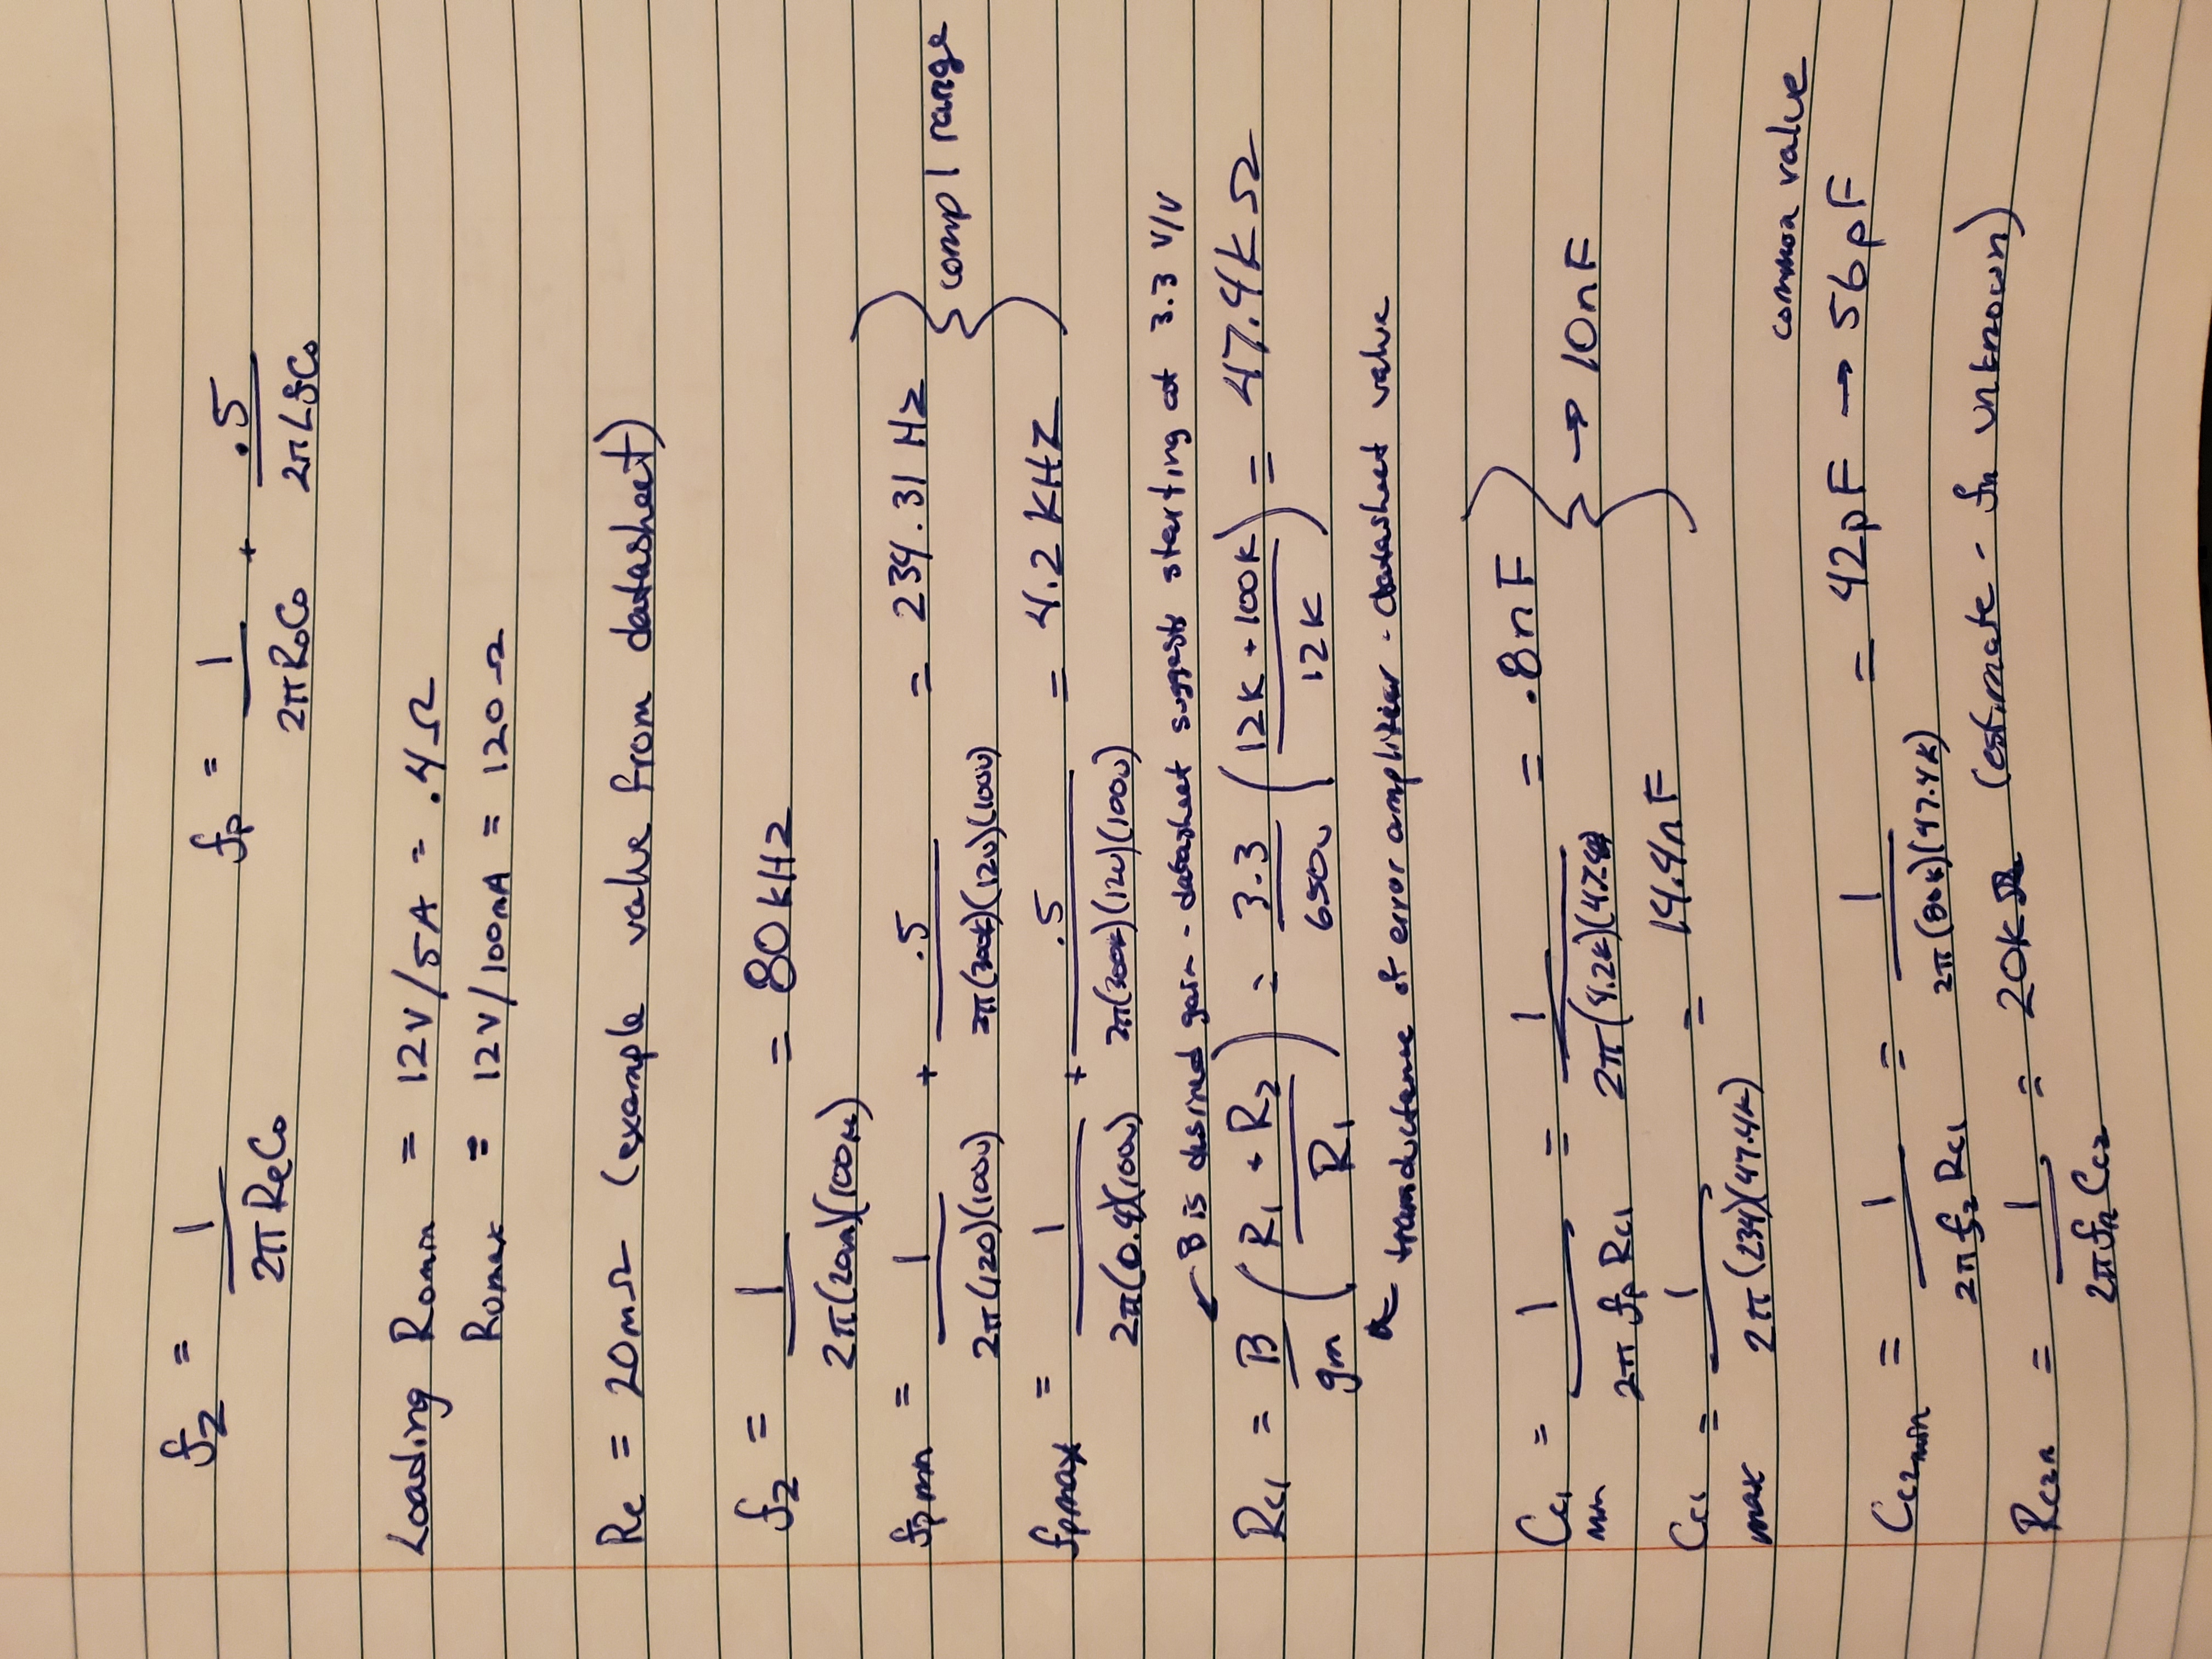 f_z = 1 / (2π Re Co)    f_p = 1 / (2π Ro Co) + .5 / (2π L f Co)
Loading Romin = 12V/5A = .4Ω
Romax = 12V/100mA = 120Ω
Re = 20mΩ (example value from datasheet)
f_z = 1 / (2π(20m)(100μ)) = 80 kHz
f_pmin = 1 / (2π(120)(100u)) + .5 / (2π(300k)(12u)(100u)) = 234.31 Hz
} comp 1 range
f_pmax = 1 / (2π(0.4)(100u)) + .5 / (2π(300k)(12u)(100u)) = 4.2 KHZ
B is desired gain - datasheet suggests starting at 3.3 V/V
Rc1 = B/gm ((R1 + R2) / R1) = 3.3/650u ((12K + 100K) / 12K) = 47.4k Ω
tranductance of error amplifier - datasheet value
Cc1 min = 1 / (2π fp Rc1) = 1 / (2π(4.2k)(47.4k)) = .8nF
} → 10nF
Cc1 max = 1 / (2π(234)(47.4k)) = 14.4nF
common value
Cc2min = 1 / (2π fz Rc1) = 1 / (2π(80k)(47.4k)) = 42pF → 56pF
Rc2n = 1 / (2π fn Cc2) = 20kΩ (estimate - fn unknown)